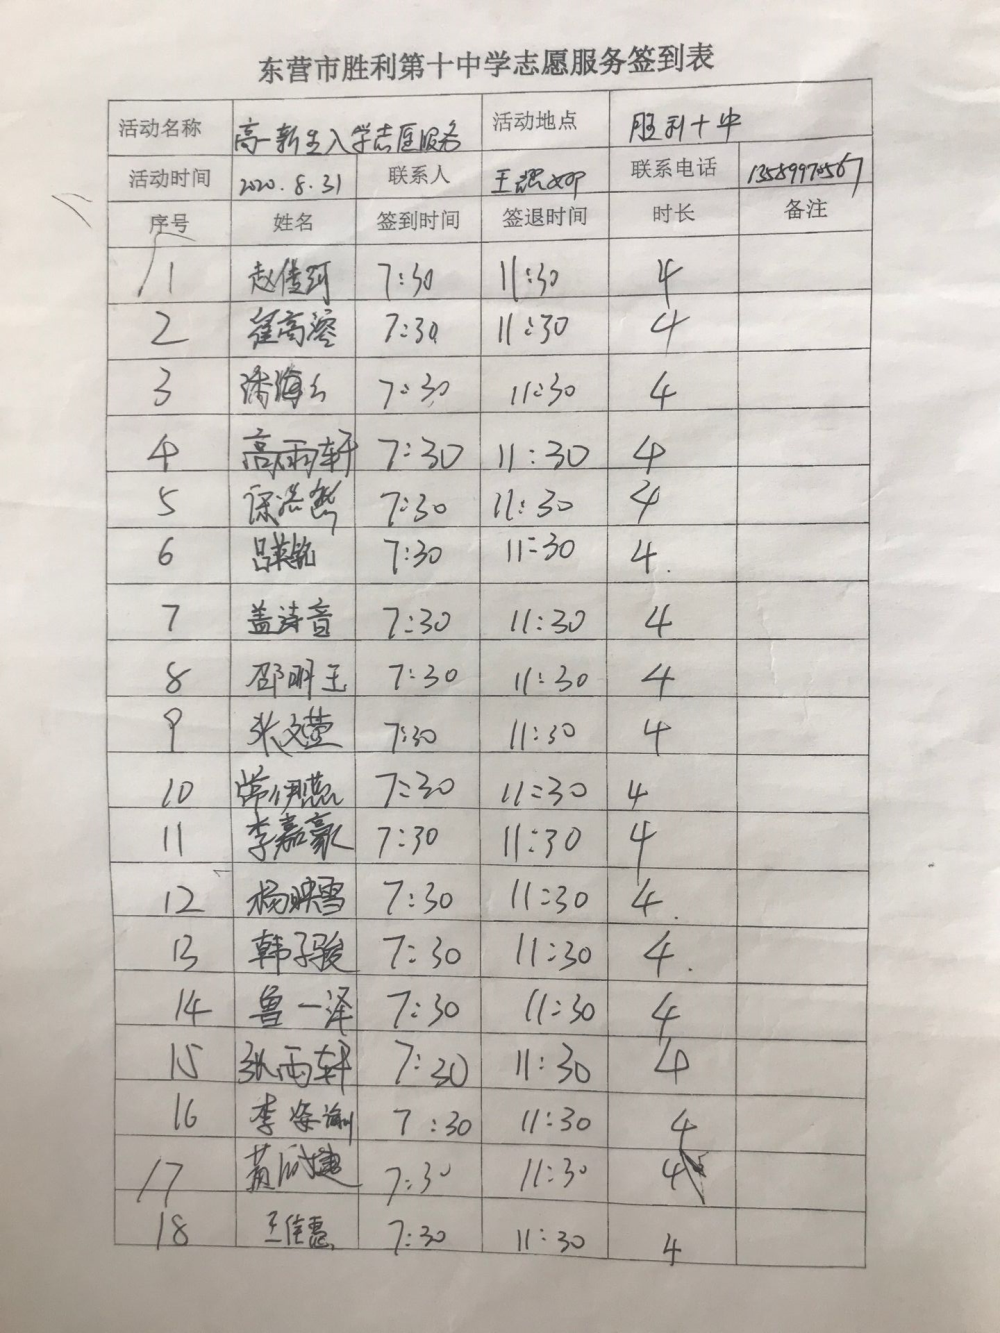 东营市胜利第十中学志愿服务签到表
活动名称 高一新生入学志愿服务 活动地点 胜利十中
活动时间 2020.8.31 联系人 王 联系电话
序号 姓名 签到时间 签退时间 时长 备注
1 赵佳 7:30 11:30 4
2 崔高溶 7:30 11:30 4
3 潘海 7:30 11:30 4
4 高雨轩 7:30 11:30 4
5 徐浩然 7:30 11:30 4
6 吕英铭 7:30 11:30 4.
7 盖诗音 7:30 11:30 4
8 邵明玉 7:30 11:30 4
9 张文萱 7:30 11:30 4
10 常伊燕 7:30 11:30 4
11 李嘉豪 7:30 11:30 4
12 杨映雪 7:30 11:30 4.
13 韩子骏 7:30 11:30 4.
14 鲁一泽 7:30 11:30 4
15 张雨轩 7:30 11:30 4
16 李姿 7:30 11:30 4
17 黄 7:30 11:30 4
18 王佳惠 7:30 11:30 4